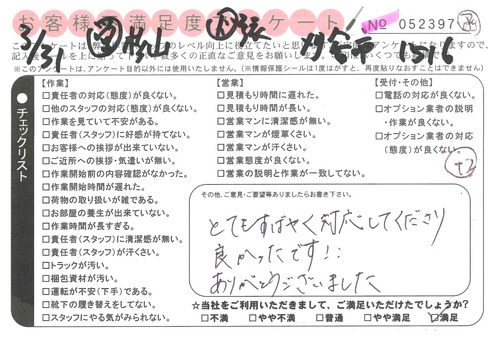 お客様満足度アンケート
No 052397
3/31
1316
※このアンケートは、アンケート目的以外には使用いたしません。（※情報保護シールは1度はがすと、再度貼りなおすことはできません）
チェックリスト
【作業】
□責任者の対応(態度)が良くない。
□他のスタッフの対応(態度)が良くない。
□作業を見ていて不安がある。
□責任者(スタッフ)に好感が持てない。
□お客様への挨拶が出来ていない。
□ご近所への挨拶・気遣いが無い。
□作業開始前の内容確認がなかった。
□作業開始時間が遅れた。
□荷物の取り扱いが雑である。
□お部屋の養生が出来ていない。
□作業時間が長すぎる。
□責任者(スタッフ)に清潔感が無い。
□責任者(スタッフ)が汗くさい。
□トラックが汚い。
□梱包資材が汚い。
□運転が不安(下手)である。
□靴下の履き替えをしてない。
□スタッフにやる気がみられない。
【営業】
□見積もり時間に遅れた。
□見積もり時間が長い。
□営業マンに清潔感が無い。
□営業マンが煙草くさい。
□営業マンが汗くさい。
□営業態度が良くない。
□営業の説明と作業が一致してない。
【受付・その他】
□電話の対応が良くない。
□オプション業者の説明・作業が良くない。
□オプション業者の対応(態度)が良くない。
その他、ご意見・ご要望等ありましたらお書き下さい。
とてもすばやく対応してくださり
良かったです!!
ありがとうございました
☆当社をご利用いただきまして、ご満足いただけたでしょうか?
□不満 □やや不満 □普通 □やや満足 □満足